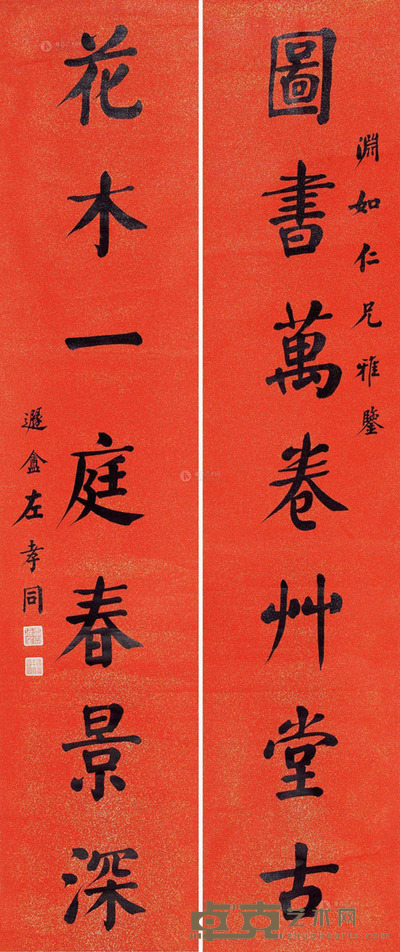 淵如仁兄雅鑒
圖書萬卷艸堂古
花木一庭春景深
遯盦左孝同
卓克艺术网